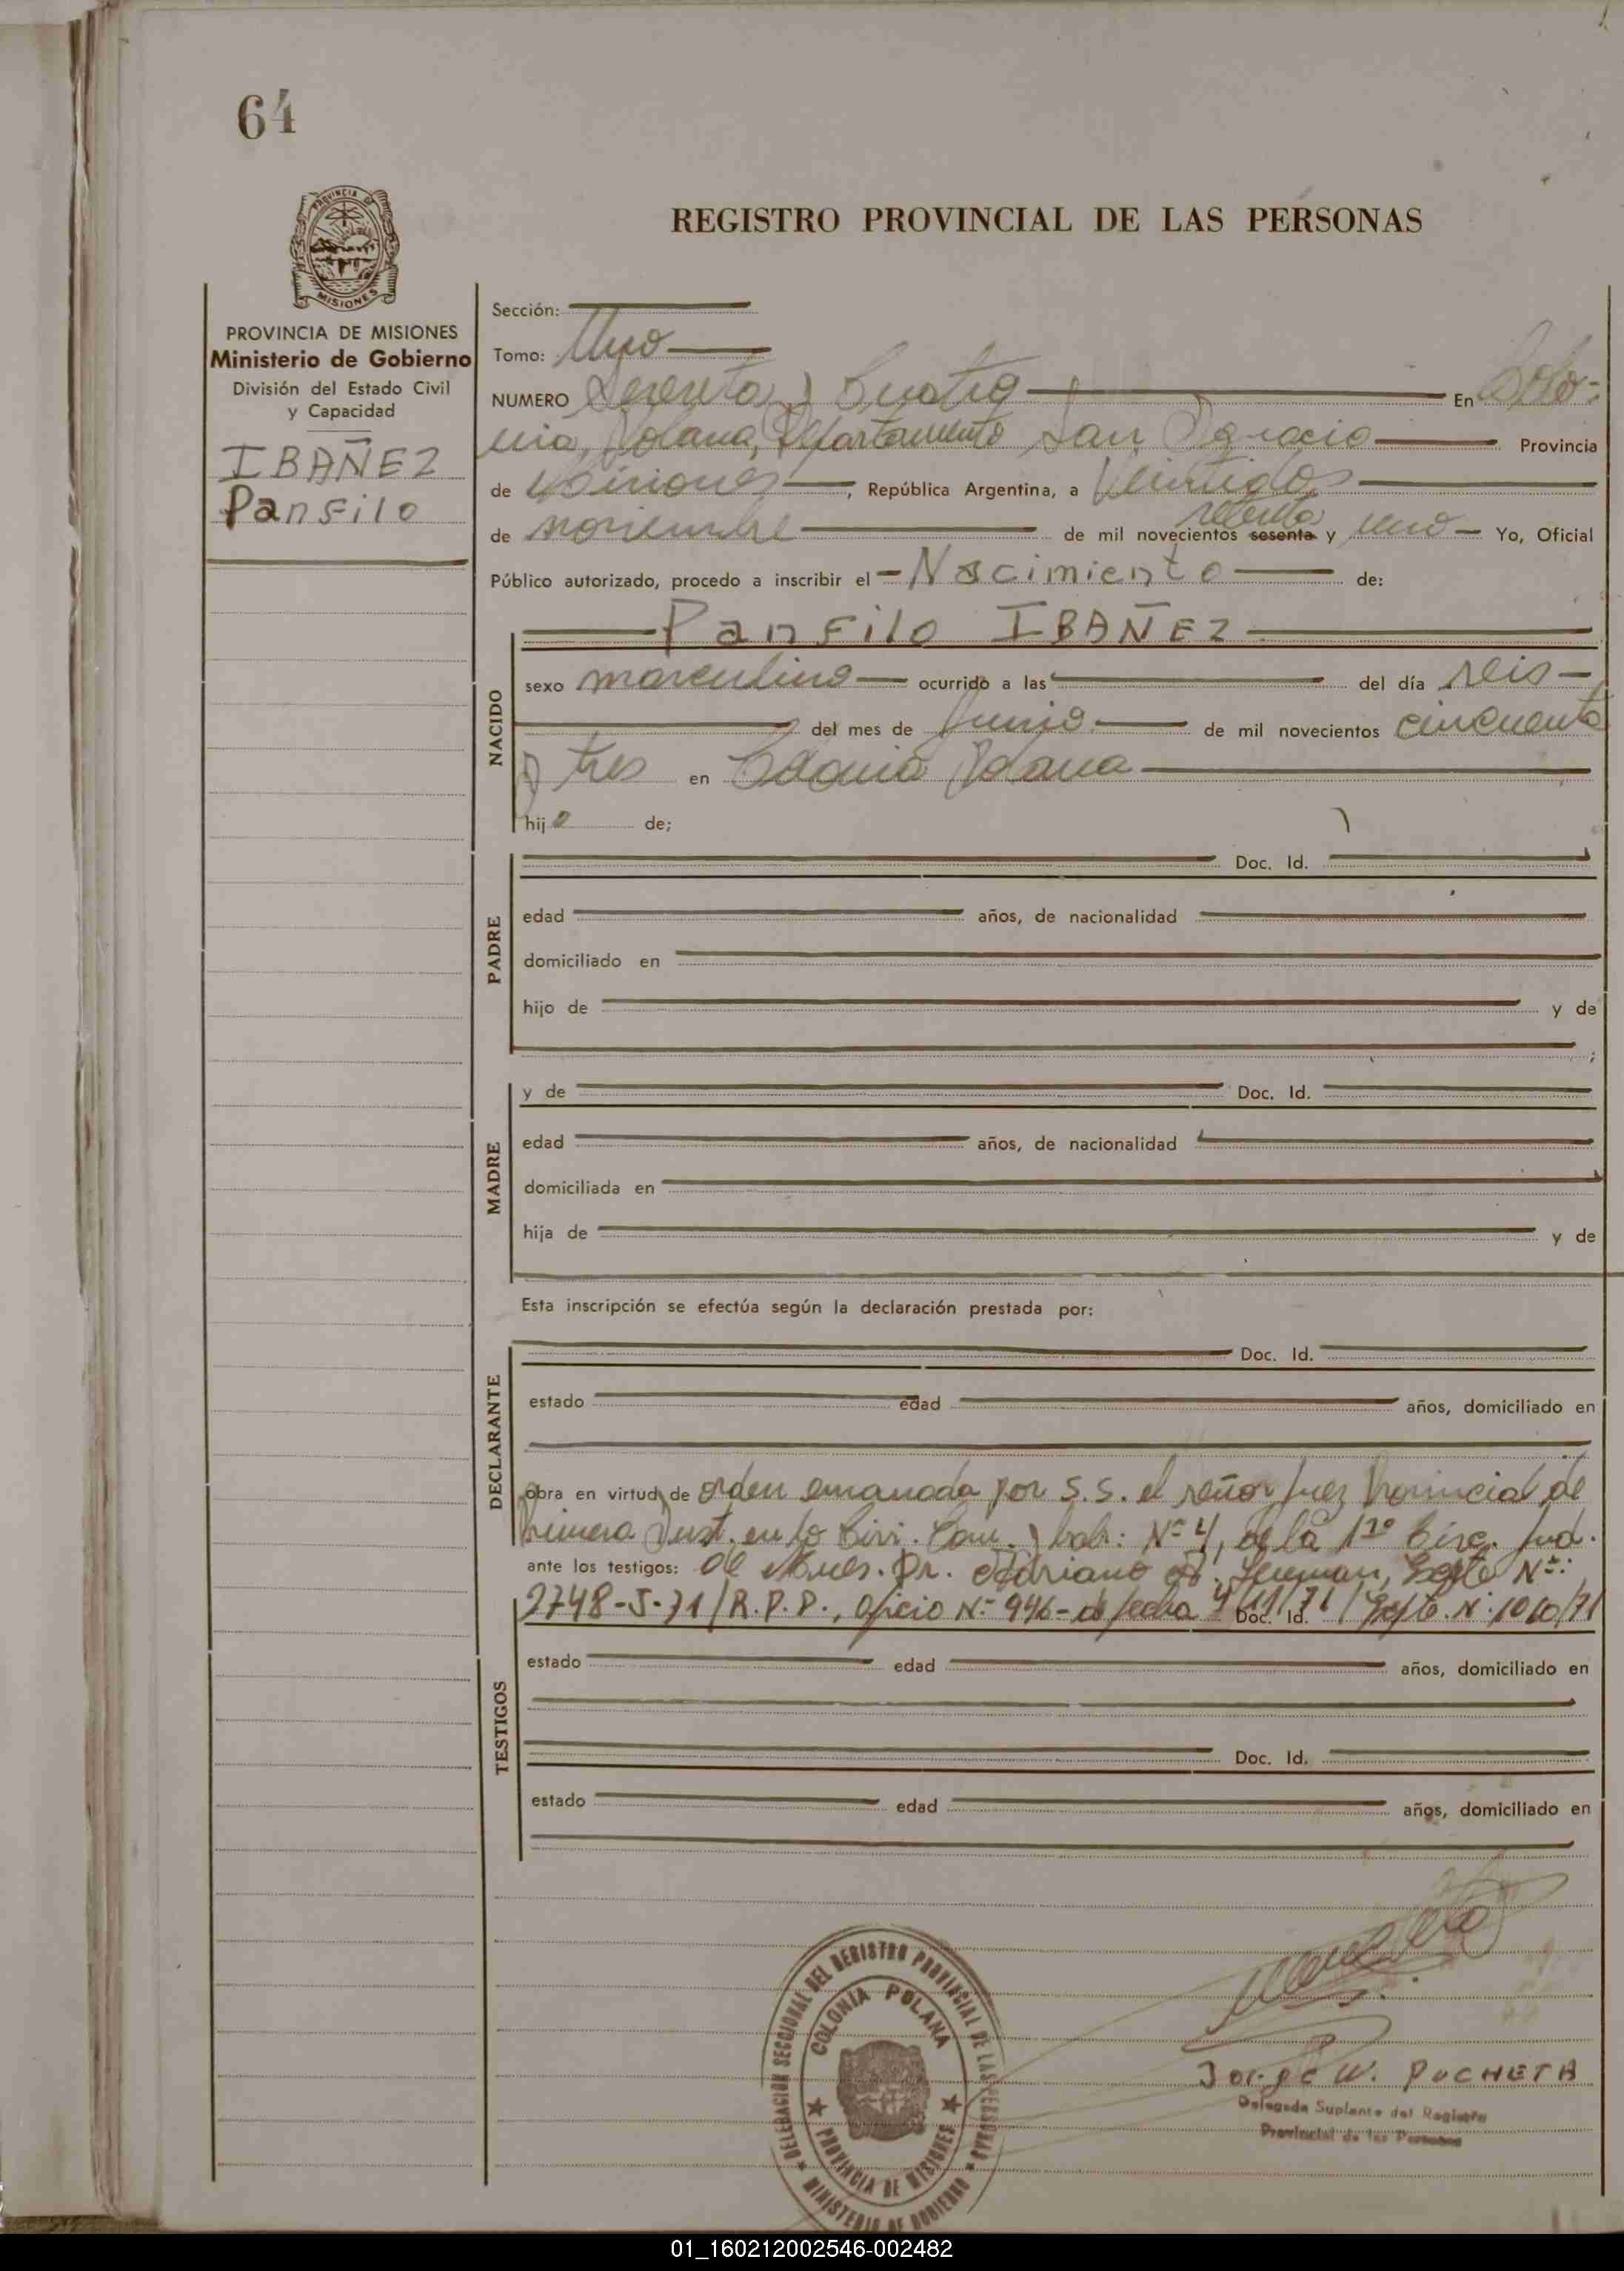 64
PROVINCIA DE
MISIONES
REGISTRO PROVINCIAL DE LAS PERSONAS
PROVINCIA DE MISIONES
Ministerio de Gobierno
División del Estado Civil
y Capacidad
IBAÑEZ
Panfilo
Sección:
Tomo: Uno
NUMERO Sesenta y Cuatro En Colo-
nia Polana, Departamento San Ignacio Provincia
de Misiones, República Argentina, a Veintidos
setenta
de noviembre de mil novecientos sesenta y uno Yo, Oficial
Público autorizado, procedo a inscribir el Nacimiento de:
Panfilo IBAÑEZ
NACIDO
sexo masculino ocurrido a las del día seis
del mes de Junio de mil novecientos cincuenta
y tres en Colonia Polana
hijo de;
PADRE
Doc. Id.
edad años, de nacionalidad
domiciliado en
hijo de y de
;
MADRE
y de Doc. Id.
edad años, de nacionalidad
domiciliada en
hija de y de
Esta inscripción se efectúa según la declaración prestada por:
DECLARANTE
Doc. Id.
estado edad años, domiciliado en
obra en virtud de orden emanada por S.S. el señor Juez Provincial de
Primera Inst. en lo Civ. Com. y Lab: Nº 4, de la 1ra Circ. Jud.
ante los testigos: de Mnes. Dr. Nº:
2748-J-71/R.P.P., Oficio Nº 946- de fecha 9/11/71 Doc. Id. / Expte. Nº 1060/71
TESTIGOS
estado edad años, domiciliado en
Doc. Id.
estado edad años, domiciliado en
DELEGACION SECCIONAL DEL REGISTRO PROVINCIAL DE LAS PERSONAS
COLONIA POLANA
PROVINCIA DE MISIONES
MINISTERIO DE GOBIERNO
Jorge W. PUCHETA
Delegado Suplente del Registro
Provincial de las Personas
01_160212002546-002482